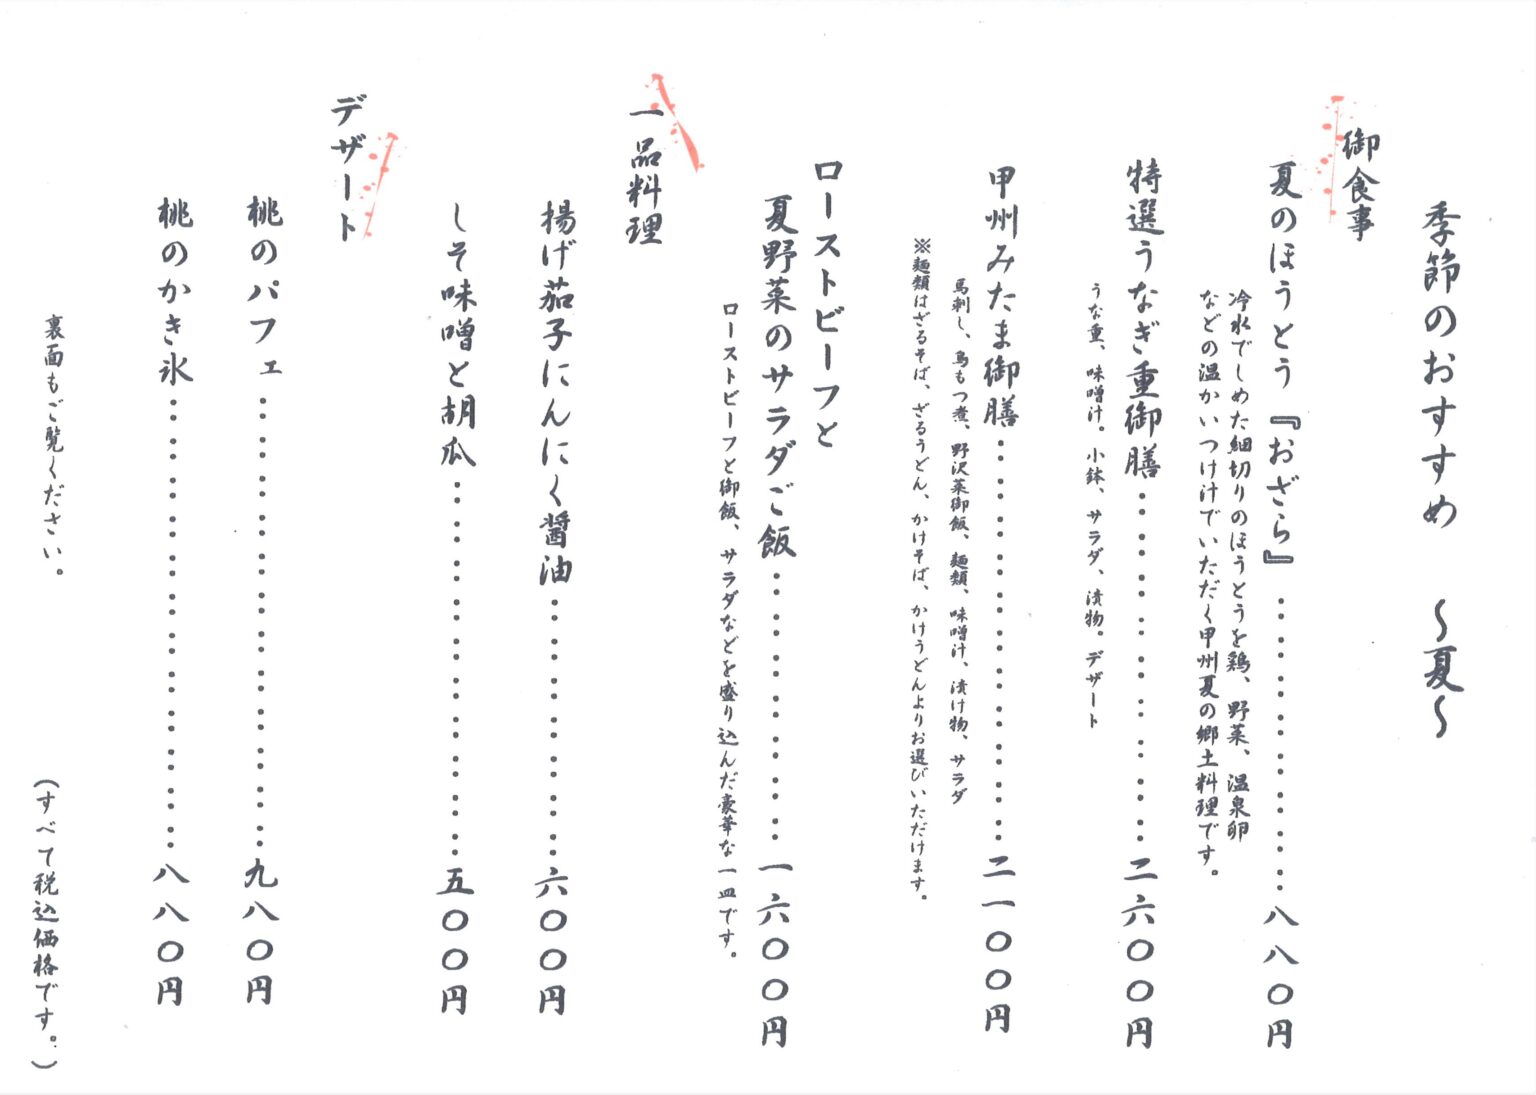 季節のおすすめ　～夏～
御食事
夏のほうとう『おざら』…………………八八〇円
冷水でしめた細切りのほうとうを鶏、野菜、温泉卵
などの温かいつけ汁でいただく甲州夏の郷土料理です。
特選うなぎ重御膳………………………二六〇〇円
うな重、味噌汁。小鉢、サラダ、漬物。デザート
甲州みたま御膳…………………………二一〇〇円
馬刺し、鳥もつ煮、野沢菜御飯、麺類、味噌汁、漬け物、サラダ
※麺類はざるそば、ざるうどん、かけそば、かけうどんよりお選びいただけます。
ローストビーフと
夏野菜のサラダご飯……………………一六〇〇円
ローストビーフと御飯、サラダなどを盛り込んだ豪華な一皿です。
一品料理
揚げ茄子にんにく醤油…………………六〇〇円
しそ味噌と胡瓜…………………………五〇〇円
デザート
桃のパフェ………………………………九八〇円
桃のかき氷………………………………八八〇円
裏面もご覧ください。
（すべて税込価格です。）